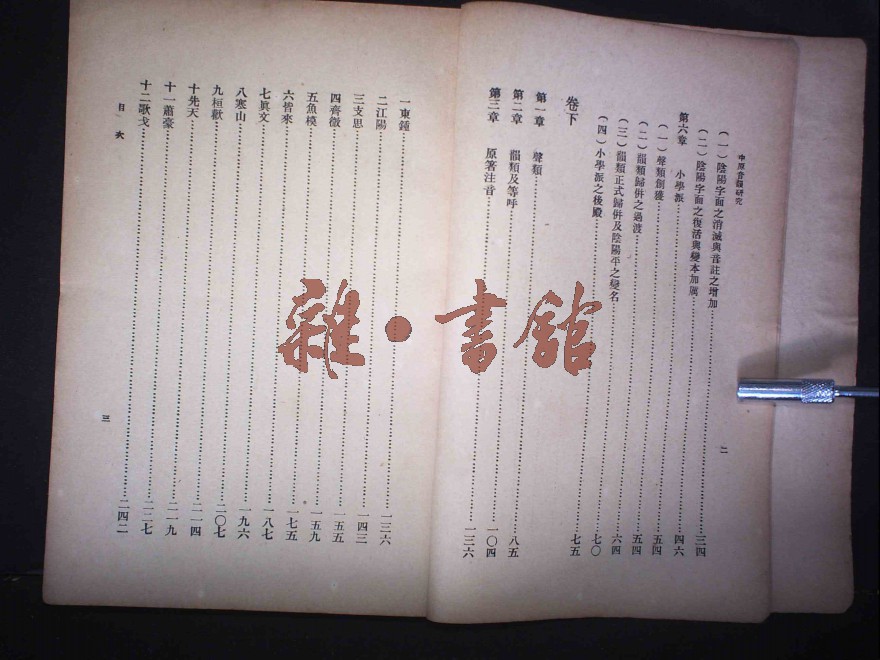 中原音韻研究
(一)陰陽字面之消滅與音註之增加……三四
(二)陰陽字面之復活與變本加厲……四六
第六章 小學派……五四
(一)聲類創獲……五四
(二)韻類歸併之過渡……六四
(三)韻類正式歸併及陰陽平之變名……七〇
(四)小學派之後殿……七五
卷下
第一章 聲類……八五
第二章 韻類及等呼……一〇四
第三章 原箸注音……一三六
二
一東鍾……一三六
二江陽……一四三
三支思……一五五
四齊微……一五九
五魚模……一七五
六皆來……一八七
七眞文……一九六
八寒山……二〇七
九桓歡……二一四
十先天……二一九
十一蕭豪……二二七
十二歌戈……二四二
目次
三
雜·書館